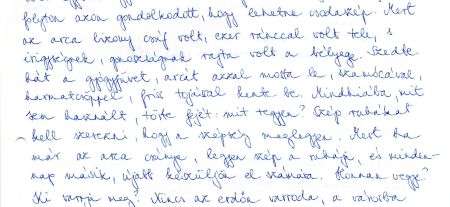 folyton azon gondolkodott, hogy lehetne csodaszép. Mert
az arca bizony csúf volt, ezer ránccal volt tele, s
irigységnek, gonoszságnak rajta volt a bélyege. Szedte
hát a gyógyfüvet, arcát azzal mosta le, szamócával,
harmatcseppel, friss tojással kente be. Mindhiába, mit
sem használt, törte fejét: mit tegyen? Szép ruhákat
kell szerezni, hogy a szépség meglegyen. Mert ha
már az arca csúnya, legyen szép a ruhája, és minden-
nap másik, újabb készüljön el számára. Honnan vegye?
Ki varrja meg? Nincs az erdőn varroda, a városba